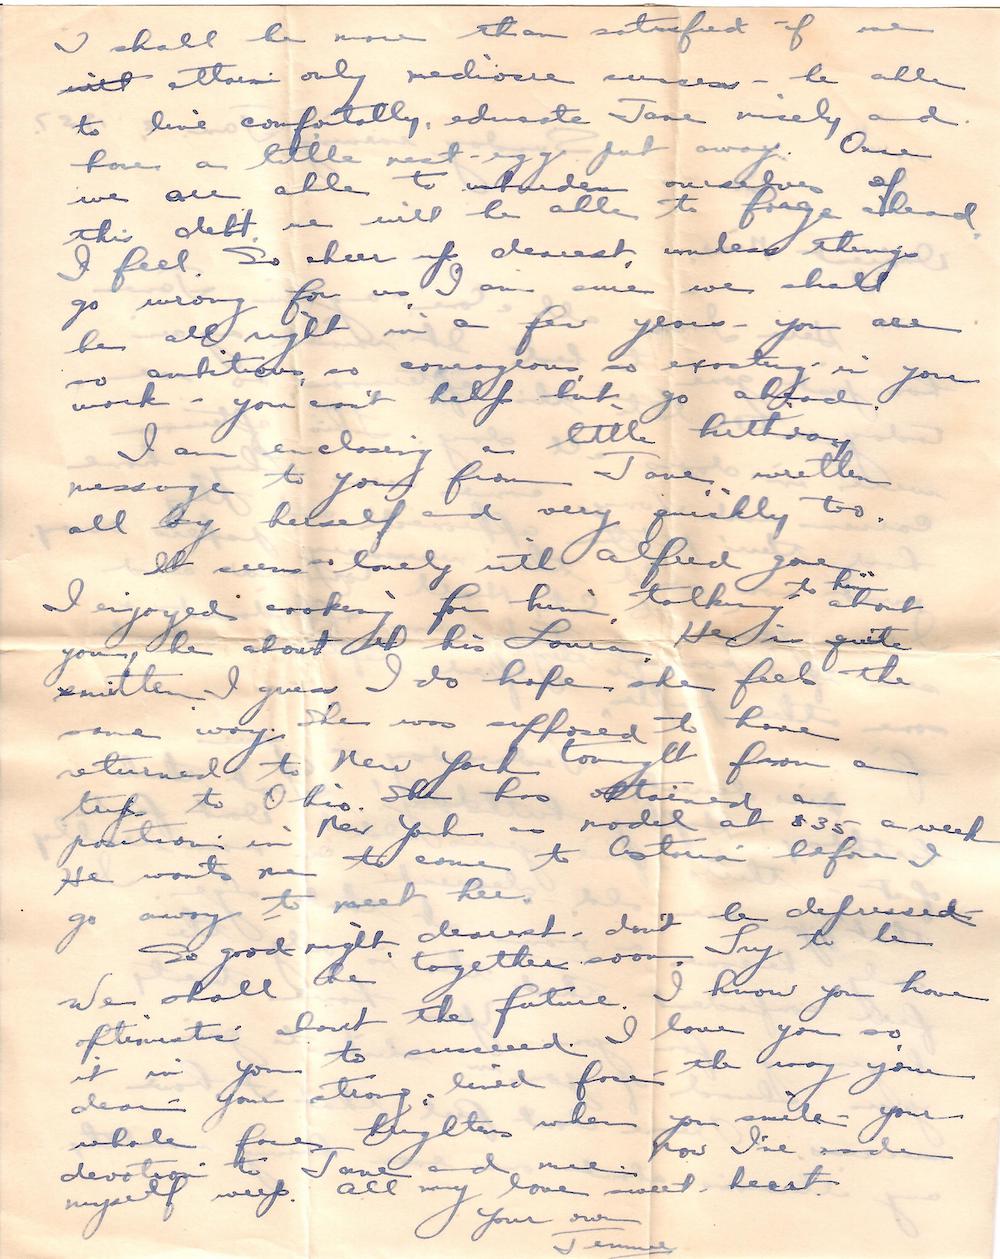 I shall be more than satisfied if we
will attain only mediocre success - be able
to live comfortably, educate Jane nicely and
have a little nest-egg put away. Once
we are able to unburden ourselves of
this debt, we will be able to forge ahead,
I feel. So cheer up, dearest, unless things
go wrong for us, I am sure we shall
be all right in a few years - you are
so ambitious, so courageous, so exacting in your
work - you can't help but go ahead.
I am enclosing a little birthday
message to you from Jane, written
all by herself and very quickly too.
It seems lonely with Alfred gone.
I enjoyed cooking for him, talking to him about
you, he about his Louisa. He is quite
smitten I guess. I do hope she feels the
same way. She was supposed to have
returned to New York tonight from a
trip to Ohio. She has obtained a
position in New York as model at $35 a week
He wants me to come to Astoria before I
go away to meet her.
So good night, dearest - don't be depressed -
We shall be together soon. Try to be
optimistic about the future. I know you have
it in you to succeed. I love you so
dear - your strong, lined face - the way your
whole face brightens when you smile - your
devotion to Jane and me. Now I've made
myself weep. All my love sweet-heart.
Your own
Jennie